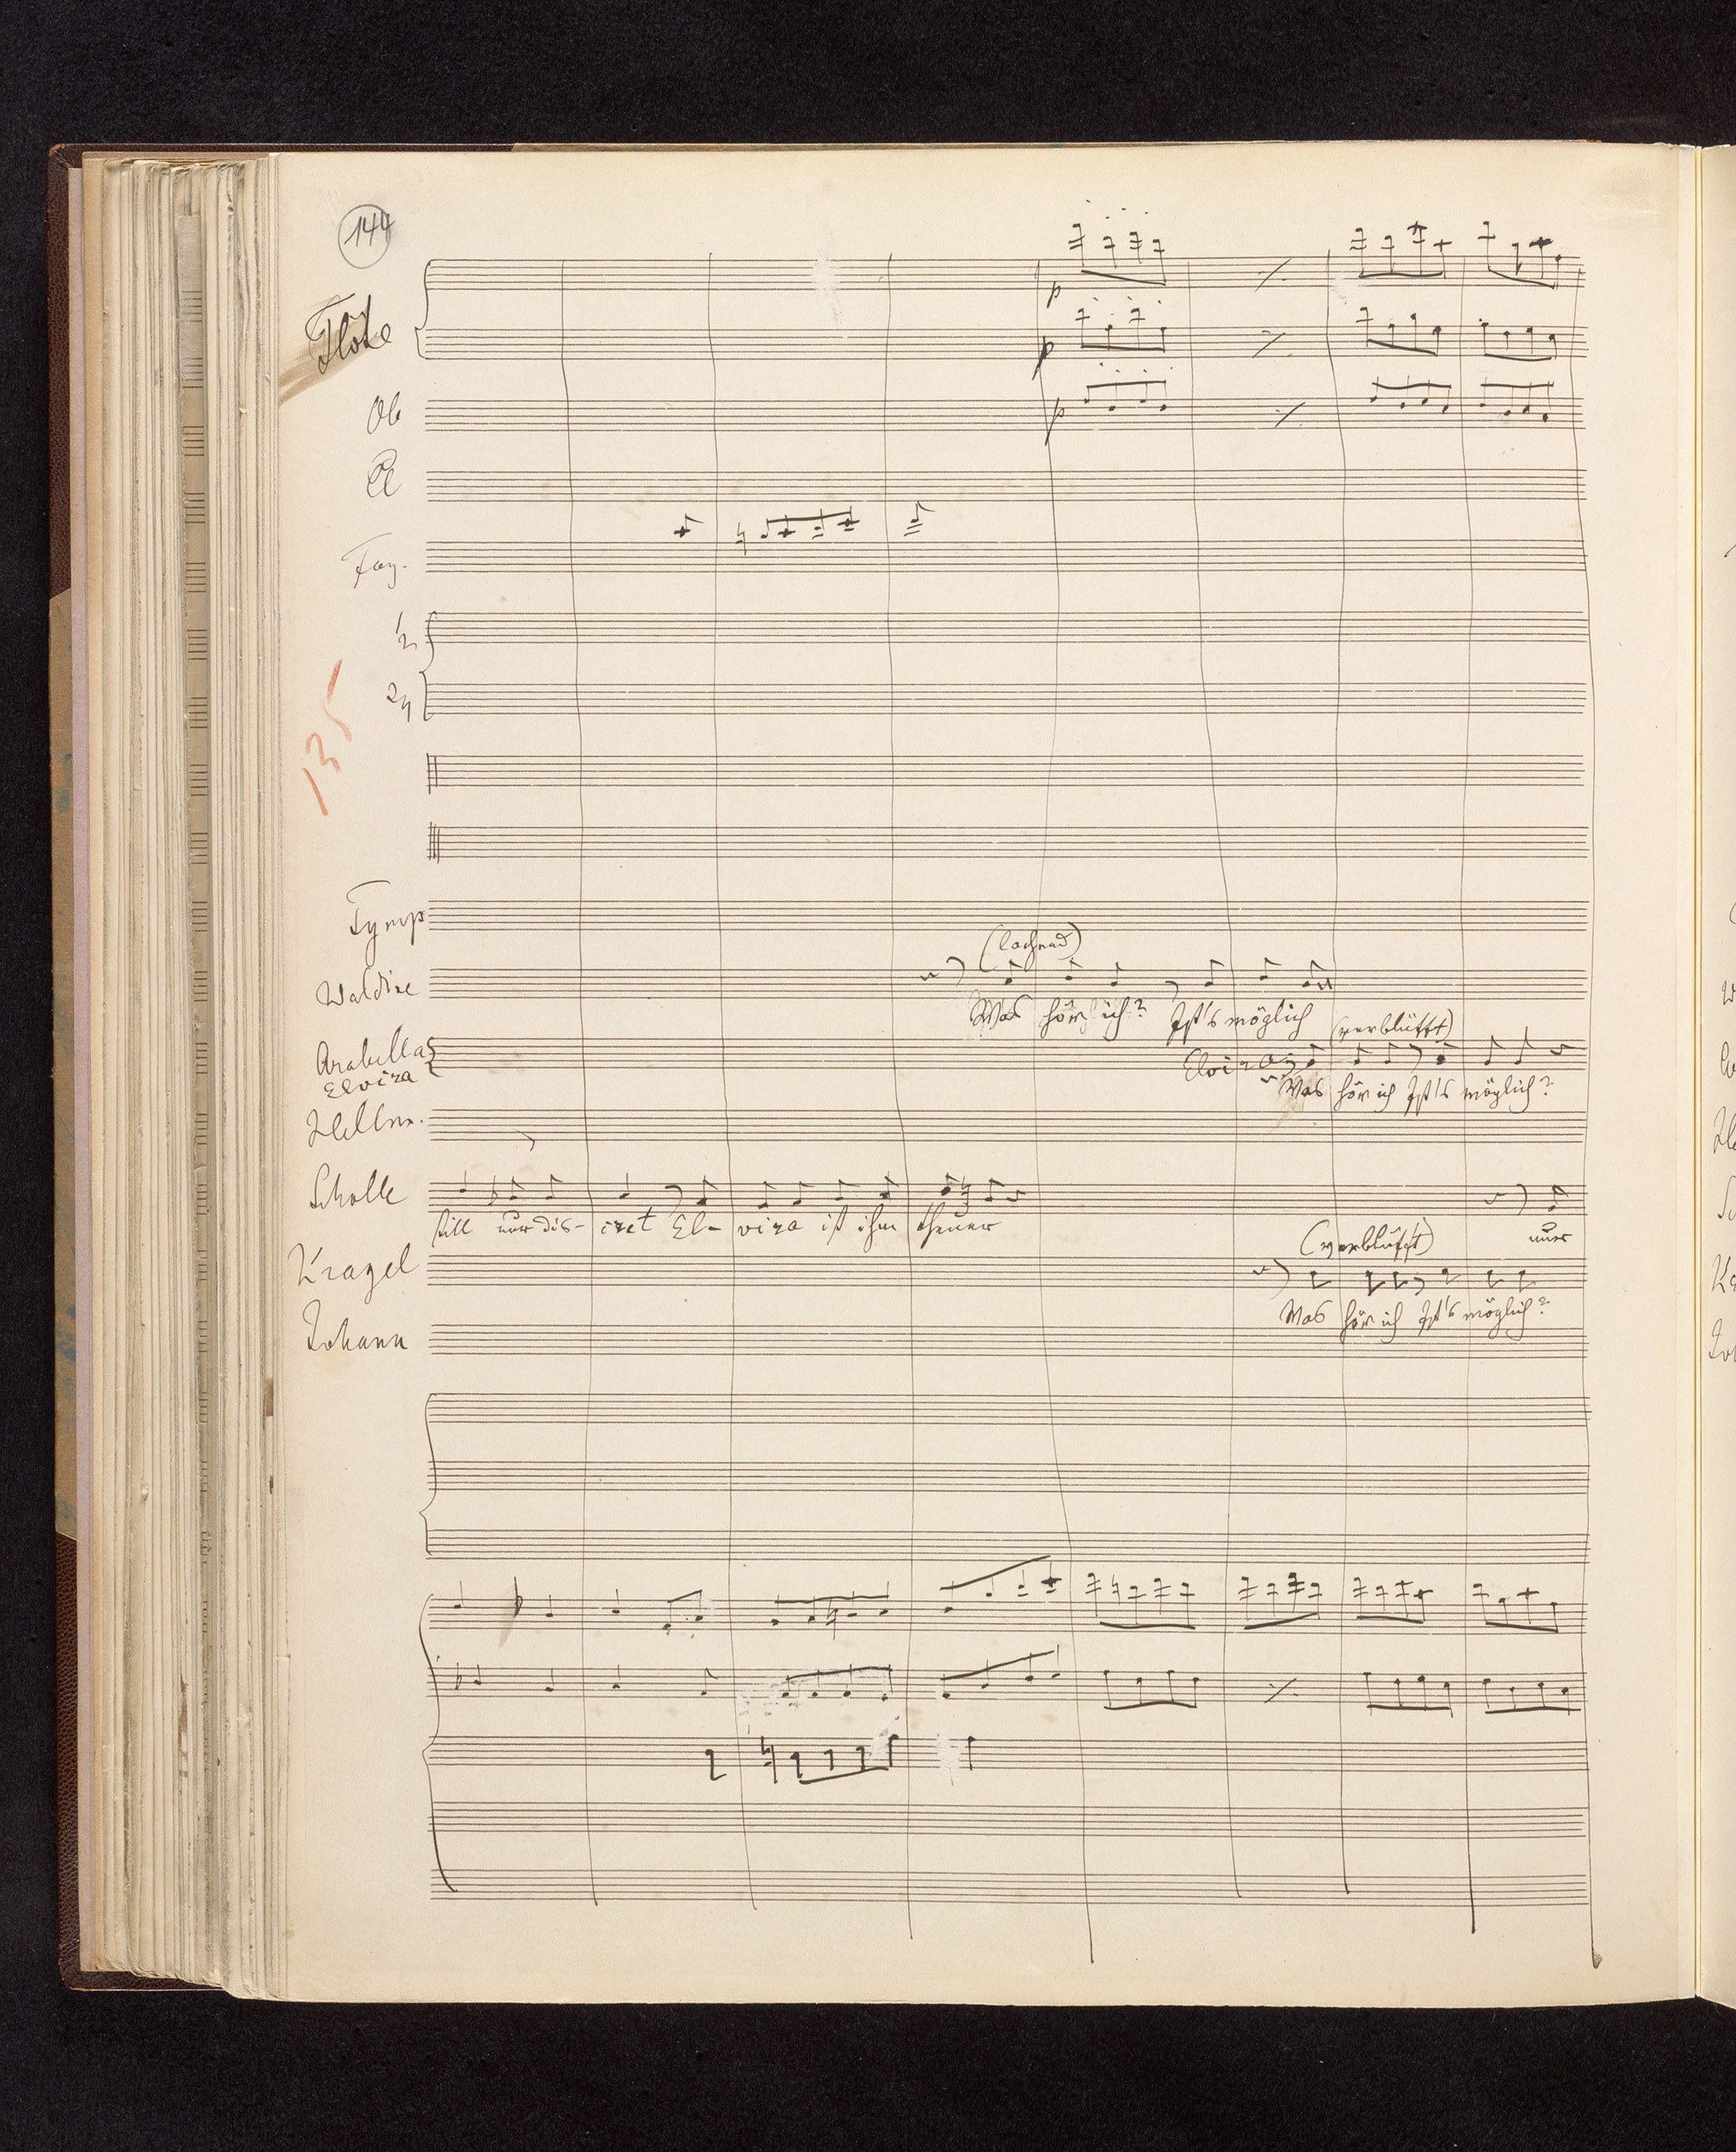 144
Flöte
p
p
Ob
p
Cl
Fag.
1/2
3/4
135
Tymp
(lachend)
Waldine
Was hör ich? Ist's möglich
(verblüfft)
Arabella
Elvira
Elvira
Was hör ich Ist's möglich?
Hellm.
Scholle
still nur dis- cret El- vira ist ihm theuer
nur
(verblüfft)
Kragel
Was hör ich Ist's möglich?
Johann